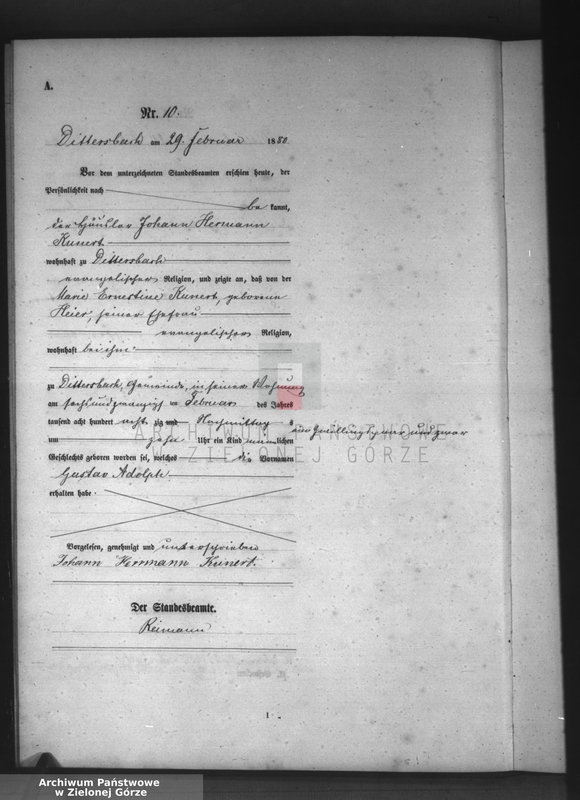 A.
Nr. 10.
Dittersbach am 29. Februar 1880
Vor dem unterzeichneten Standesbeamten erschien heute, der
Persönlichkeit nach
be kannt,
der Häusler Johann Hermann
Kunert
wohnhaft zu Dittersbach
evangelischer Religion, und zeigte an, daß von der
Marie Ernestine Kunert, geborene
Heier, seiner Ehefrau
evangelischer Religion,
wohnhaft bei ihm
zu Dittersbach, Gemeinde, in seiner Wohnung
am sechsundzwanzigsten Februar des Jahres
tausend acht hundert achtzig und Nachmittag s
um zehn Uhr ein Kind männlichen
als Zwilling und zwar
Geschlechts geboren worden sei, welches die Vornamen
Gustav Adolph
erhalten habe.
Vorgelesen, genehmigt und unterschrieben
Johann Herrmann Kunert.
Der Standesbeamte.
Reimann
1
ARCHIWUM PAŃSTWOWE
W ZIELONEJ GÓRZE
Archiwum Państwowe
w Zielonej Górze